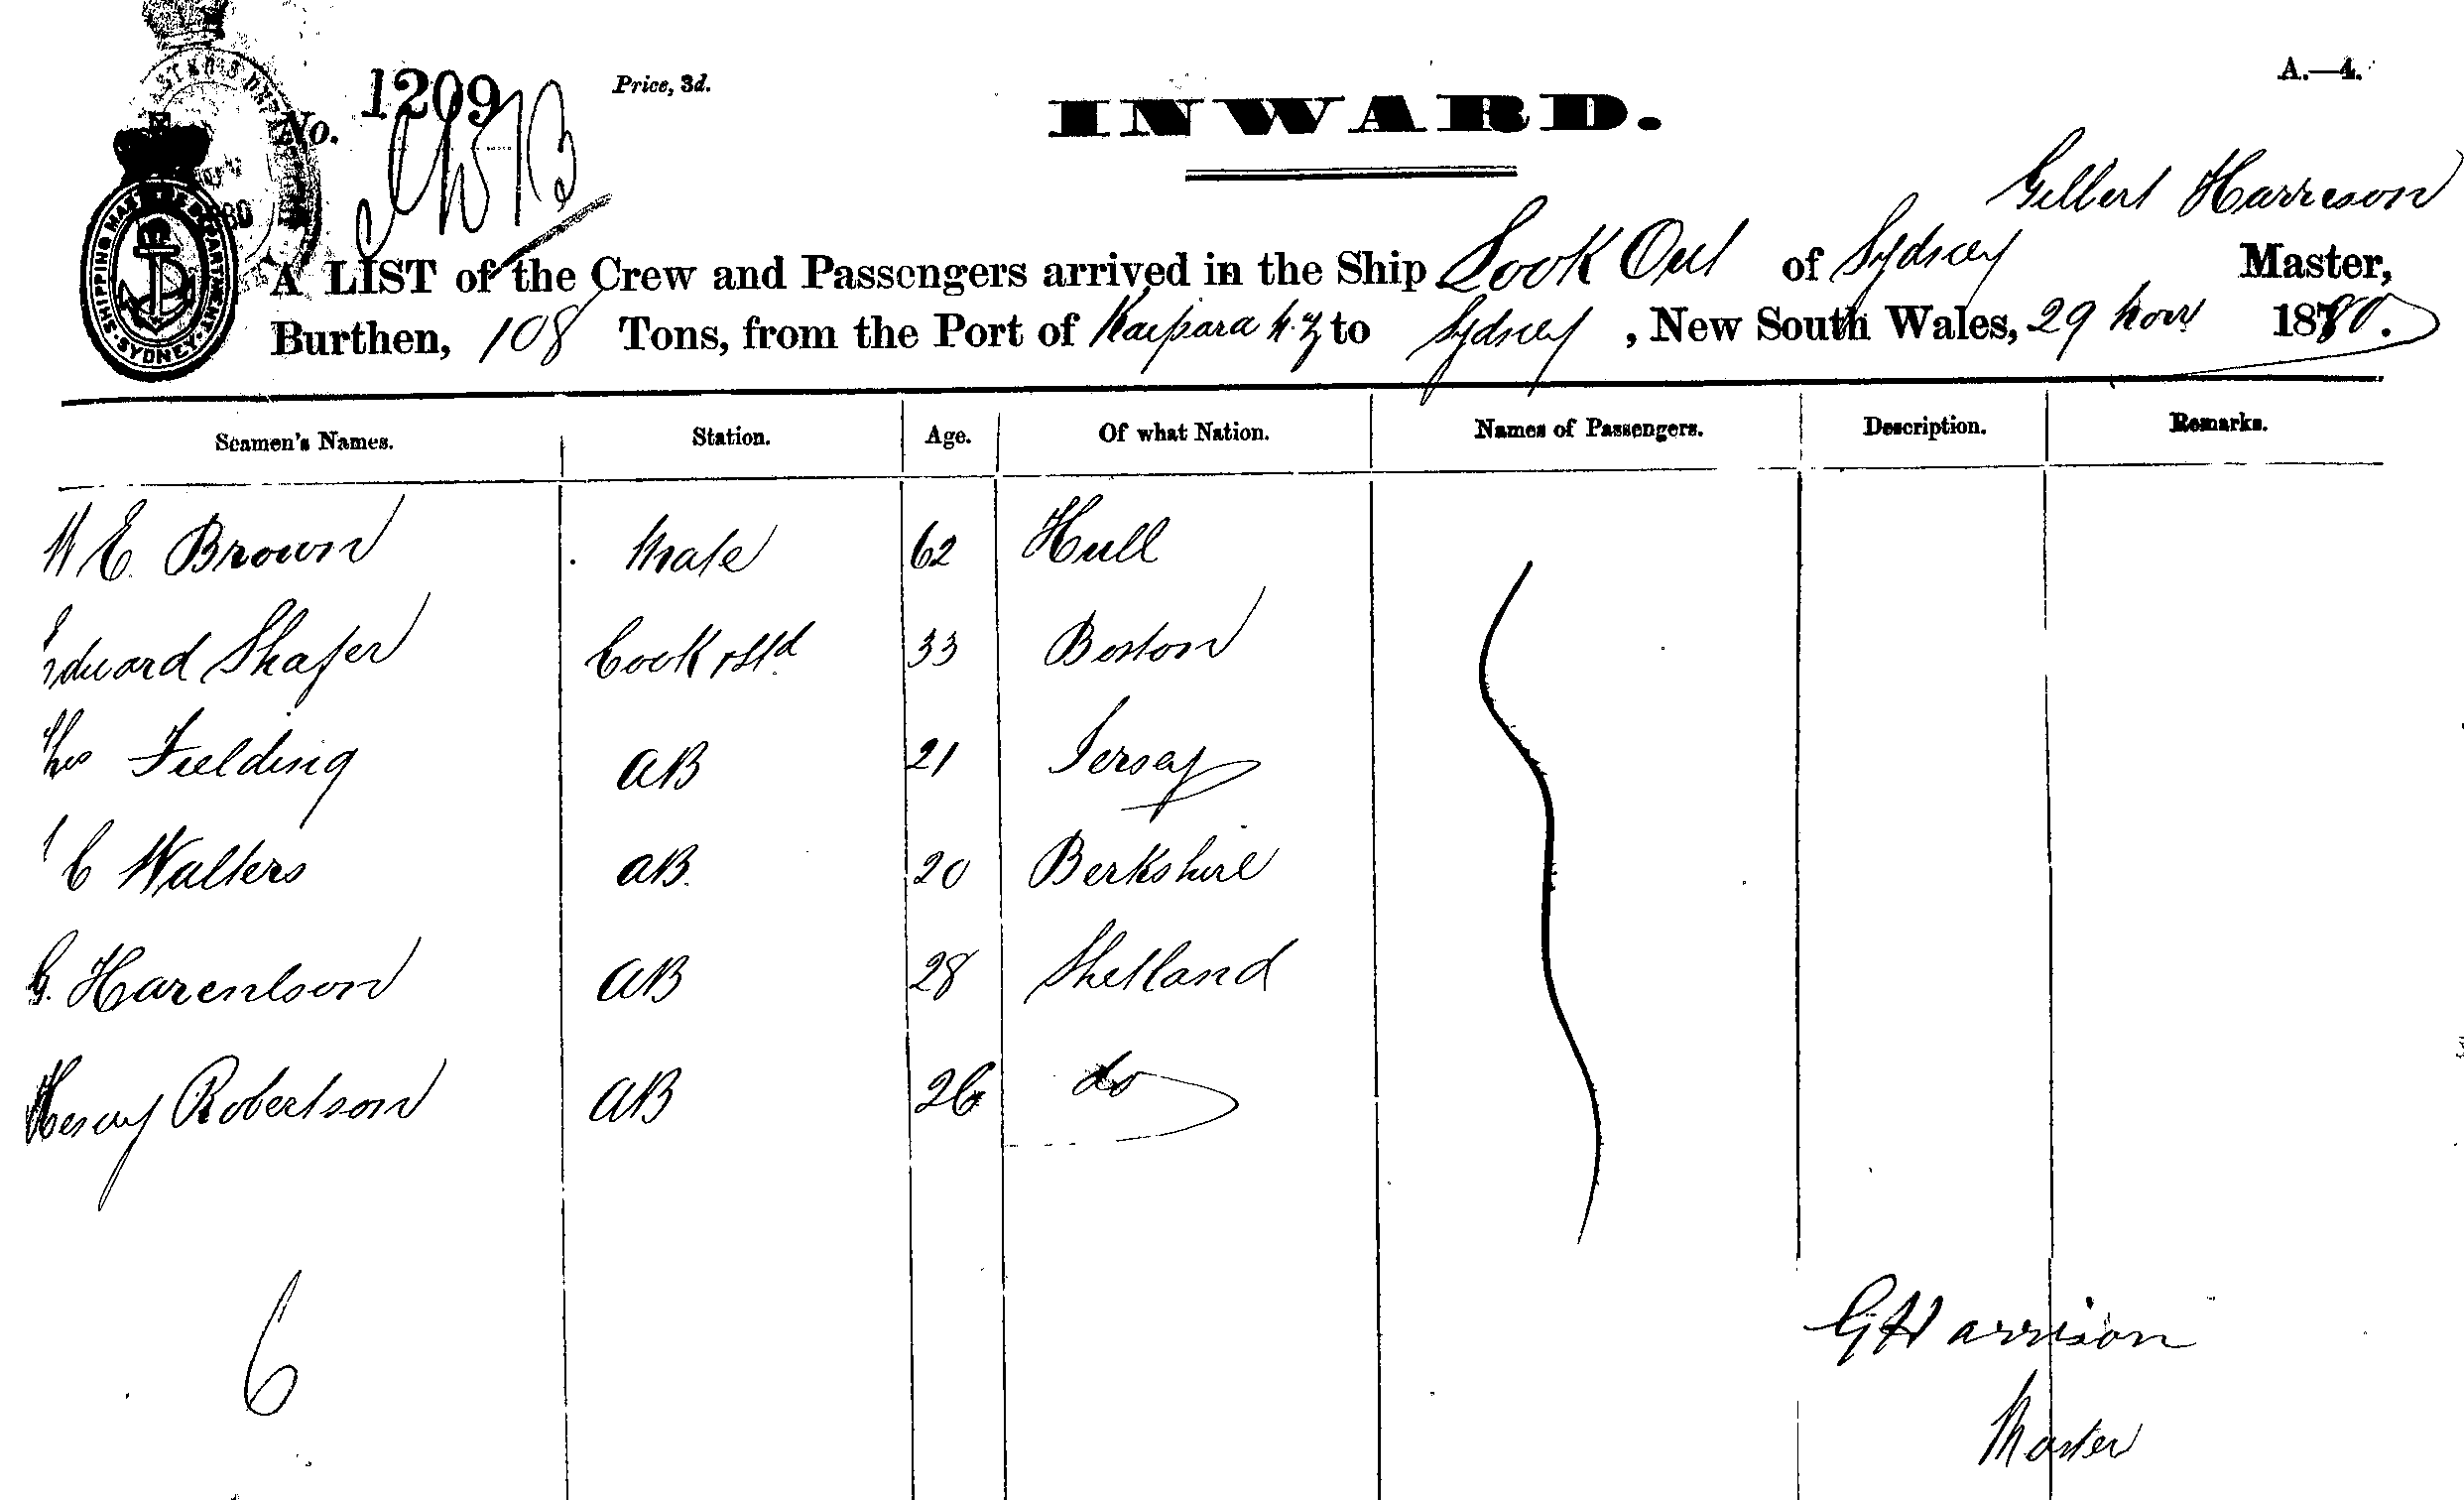 No. 1209 Price, 3d. A.—4.
INWARD.
Gilbert Harrison
A LIST of the Crew and Passengers arrived in the Ship Look Out of Sydney Master,
Burthen, 108 Tons, from the Port of Kaipara N.Z to Sydney, New South Wales, 29 Novr 1880.
SHIPPING MASTER'S DEPARTMENT SYDNEY
Seamen's Names. Station. Age. Of what Nation. Names of Passengers. Description. Remarks.
W E Brown Mate 62 Hull
Edward Shafer Cook & Std 33 Boston
Thos Fielding AB 21 Jersey
C Walters AB. 20 Berkshire
G. AB 28 Shetland
Henry Robertson AB 26 do
6
G Harrison
Master